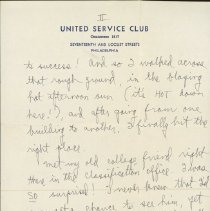 II
UNITED SERVICE CLUB
ORGANIZED 1917
SEVENTEENTH AND LOCUST STREETS
PHILADELPHIA
to success! And so I walked across
that rough ground, in the blazing
hot afternoon sun (it's HOT down
here!), and after going from one
building to another, I finally hit the
right place
Met my old college friend right
there in the classification office. I was
SO surprised! I never knew that I'd
get a chance to see him, yet